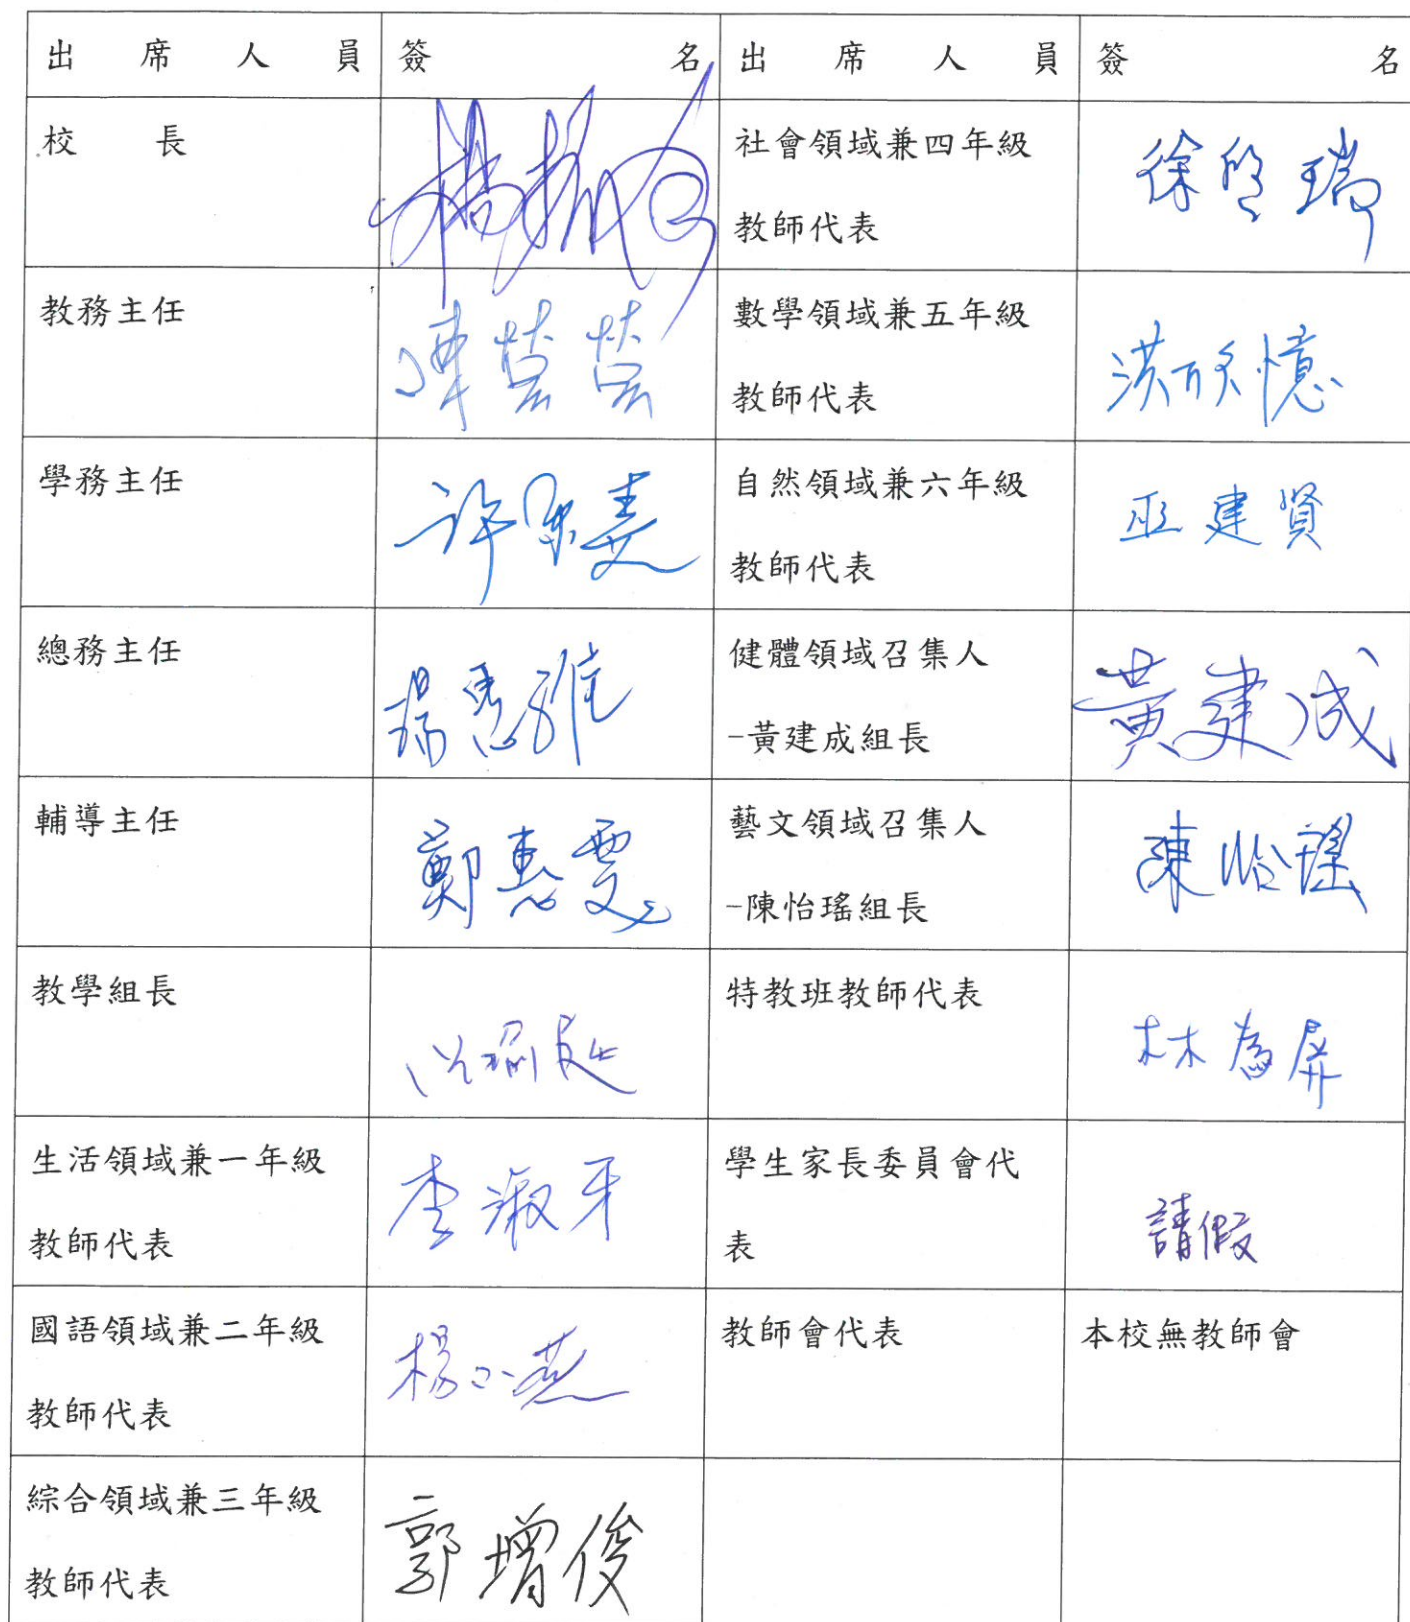 出席人員 簽名 出席人員 簽名
校長 社會領域兼四年級
教師代表 徐啓瑞
教務主任 陳營營 數學領域兼五年級
教師代表 洪欣憶
學務主任 許 自然領域兼六年級
教師代表 巫建賢
總務主任 楊惠雅 健體領域召集人
-黃建成組長 黃建成
輔導主任 鄭惠雯 藝文領域召集人
-陳怡瑤組長 陳怡瑤
教學組長 特教班教師代表 林為屏
生活領域兼一年級
教師代表 李淑牙 學生家長委員會代
表 請假
國語領域兼二年級
教師代表 楊小燕 教師會代表 本校無教師會
綜合領域兼三年級
教師代表 郭增俊